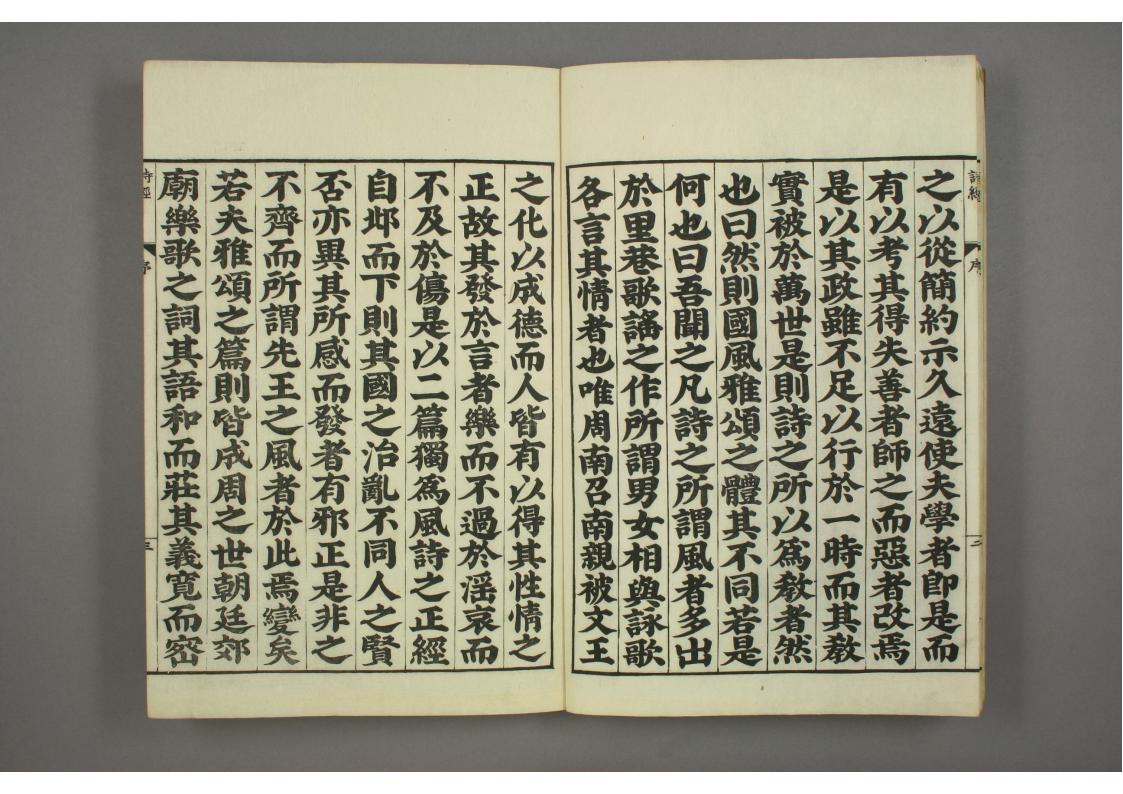 詩經
序
二
之以從簡約示久遠使夫學者即是而
有以考其得失善者師之而惡者改焉
是以其政雖不足以行於一時而其教
實被於萬世是則詩之所以為教者然
也曰然則國風雅頌之體其不同若是
何也曰吾聞之凡詩之所謂風者多出
於里巷歌謠之作所謂男女相與詠歌
各言其情者也唯周南召南親被文王
之化以成德而人皆有以得其性情之
正故其發於言者樂而不過於淫哀而
不及於傷是以二篇獨為風詩之正經
自邶而下則其國之治亂不同人之賢
否亦異其所感而發者有邪正是非之
不齊而所謂先王之風者於此焉變矣
若夫雅頌之篇則皆成周之世朝廷郊
廟樂歌之詞其語和而莊其義寬而密
詩經
序
三